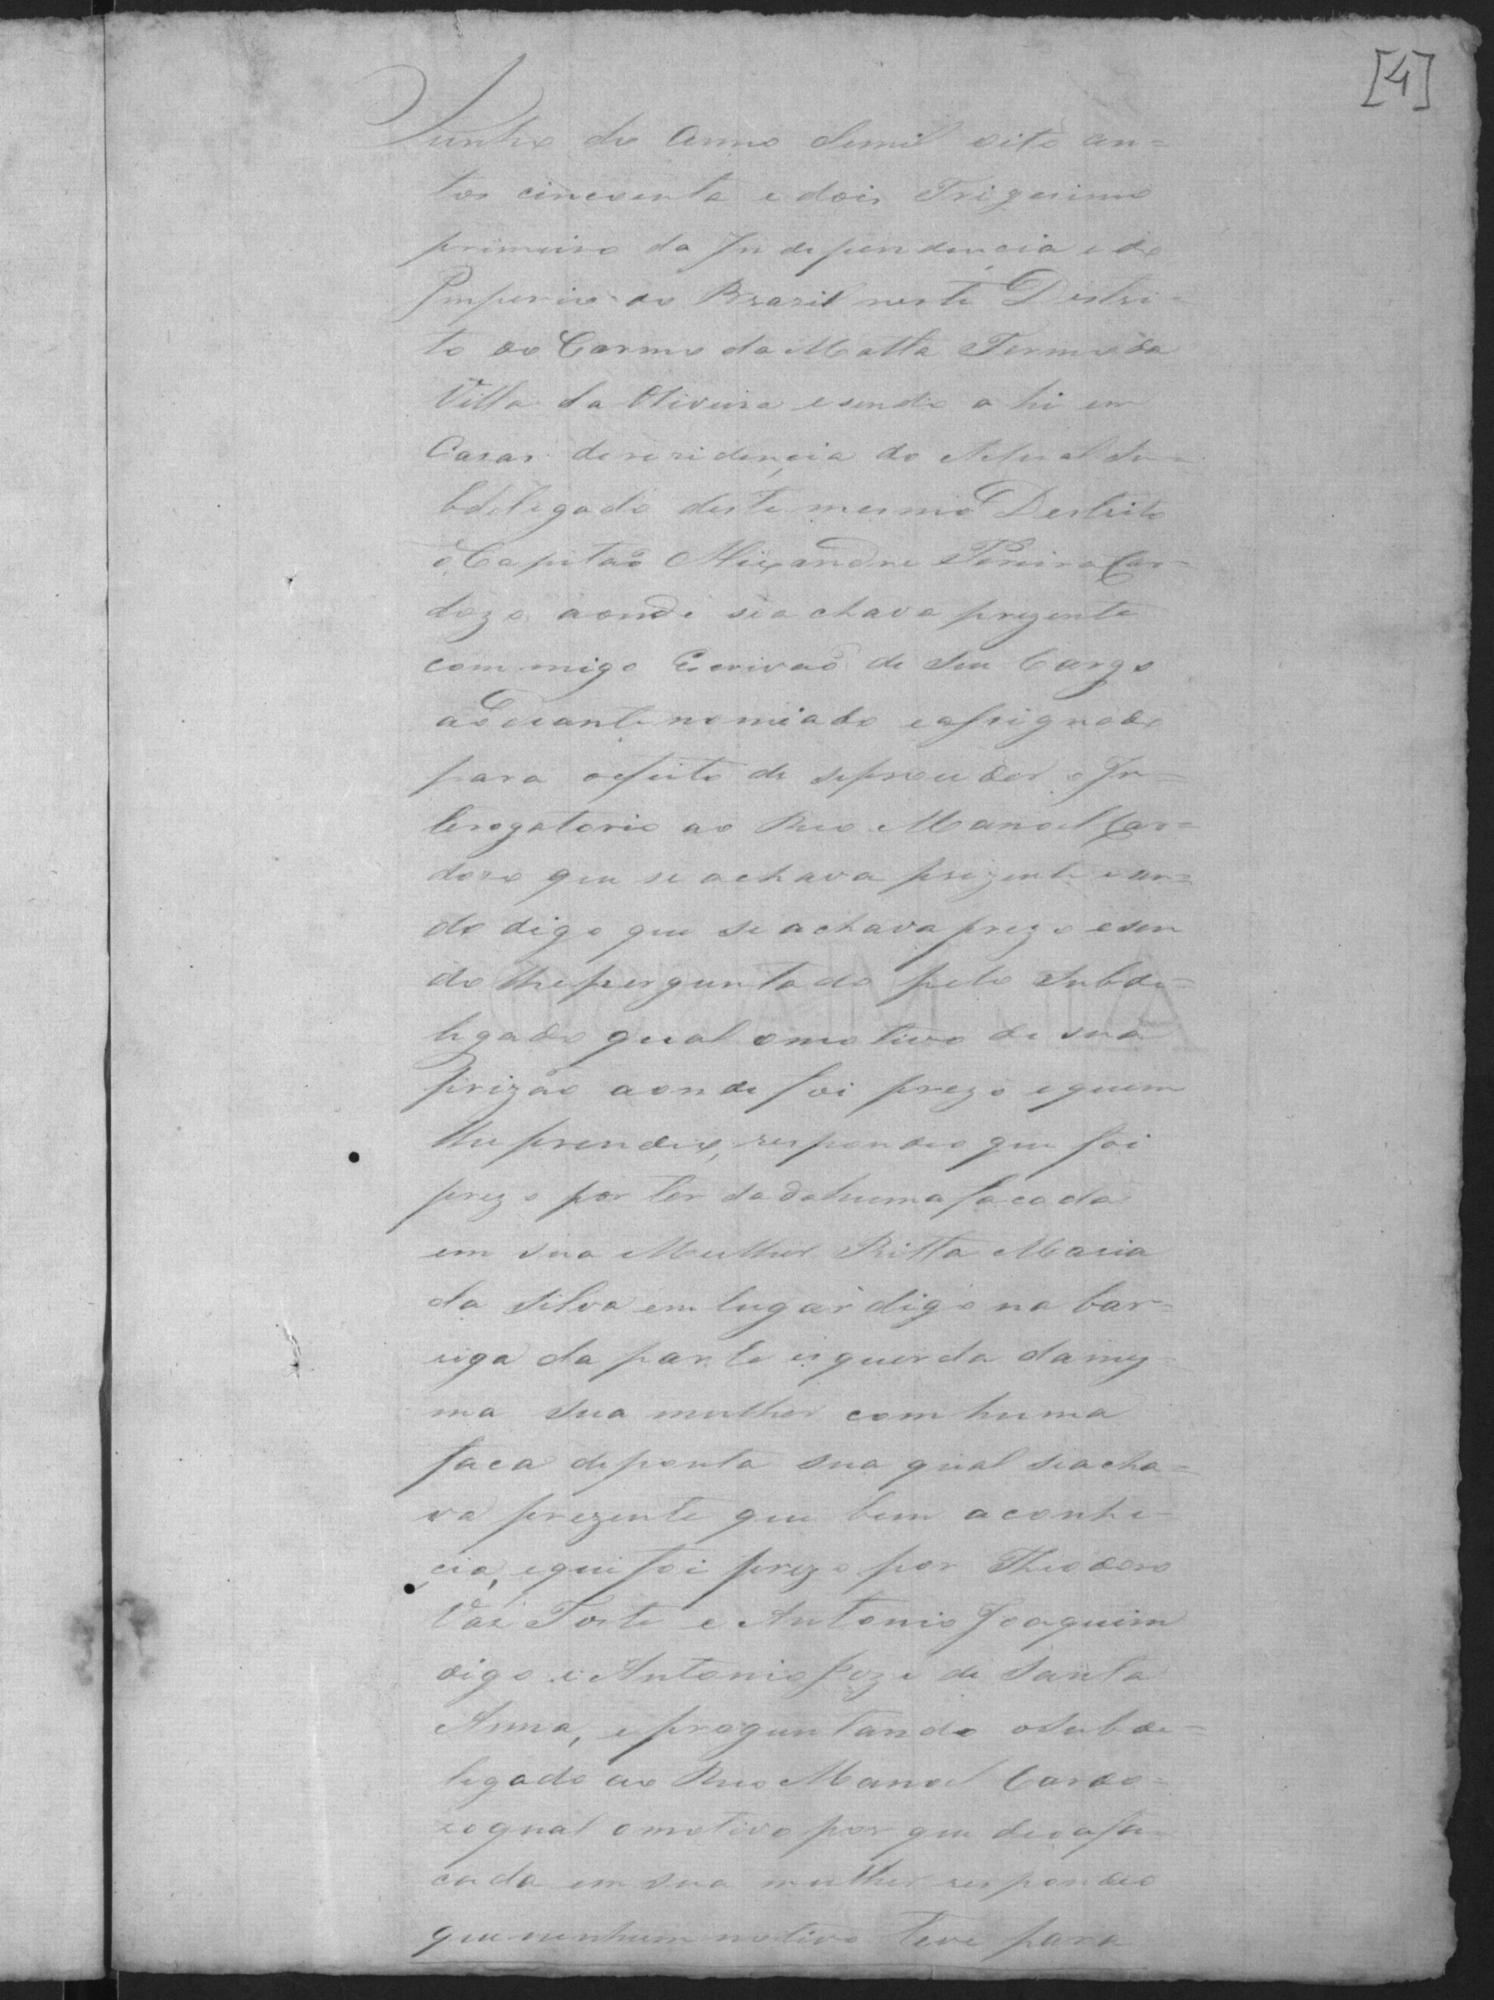 [4]
Junho do Anno demil oito cen=
tos cincoenta e dois Trigesimo
primeiro da Independencia e do
Imperio do Brazil neste Destri=
to do Carmo da Matta Termo da
Villa da Oliveira e sendo a hi em
Casas de rezidencia do Actual Su=
bdelegado deste mesmo Destrito
o Capitaõ Alixandre Pereira Car=
dozo aonde sea chava prezente
com migo Escrivaõ de Seu Cargo
ao diante nomiado e assignado
para o feito de seproceder o In=
terogatorio ao Reo Manoel Car=
dozo que se achava prezente e cen=
do digo que se achava prezo e sen
do lhe perguntado pelo Subde=
legado qual o motivo de sua
prizão aonde foi prezo e quem
lhe prendeo, respondeo que foi
prezo por ter dado huma facada
em sua Mulher Ritta Maria
da Silva em lugar digo na bar=
riga da parte esquerda da mes
ma sua mulher com huma
faca de ponta sua qual seacha=
va prezente que bem a conhe=
cia, e que foi prezo por Theodoro
Vaz Forte e Antonio Joaquim
digo e Antonio Joze de Santa
Anna, e preguntando o Subde=
legado ao Reo Manoel Cardo=
zo qual o motivo por que deo a fa=
cada em sua mulher respondeo
que nenhum motivo teve para